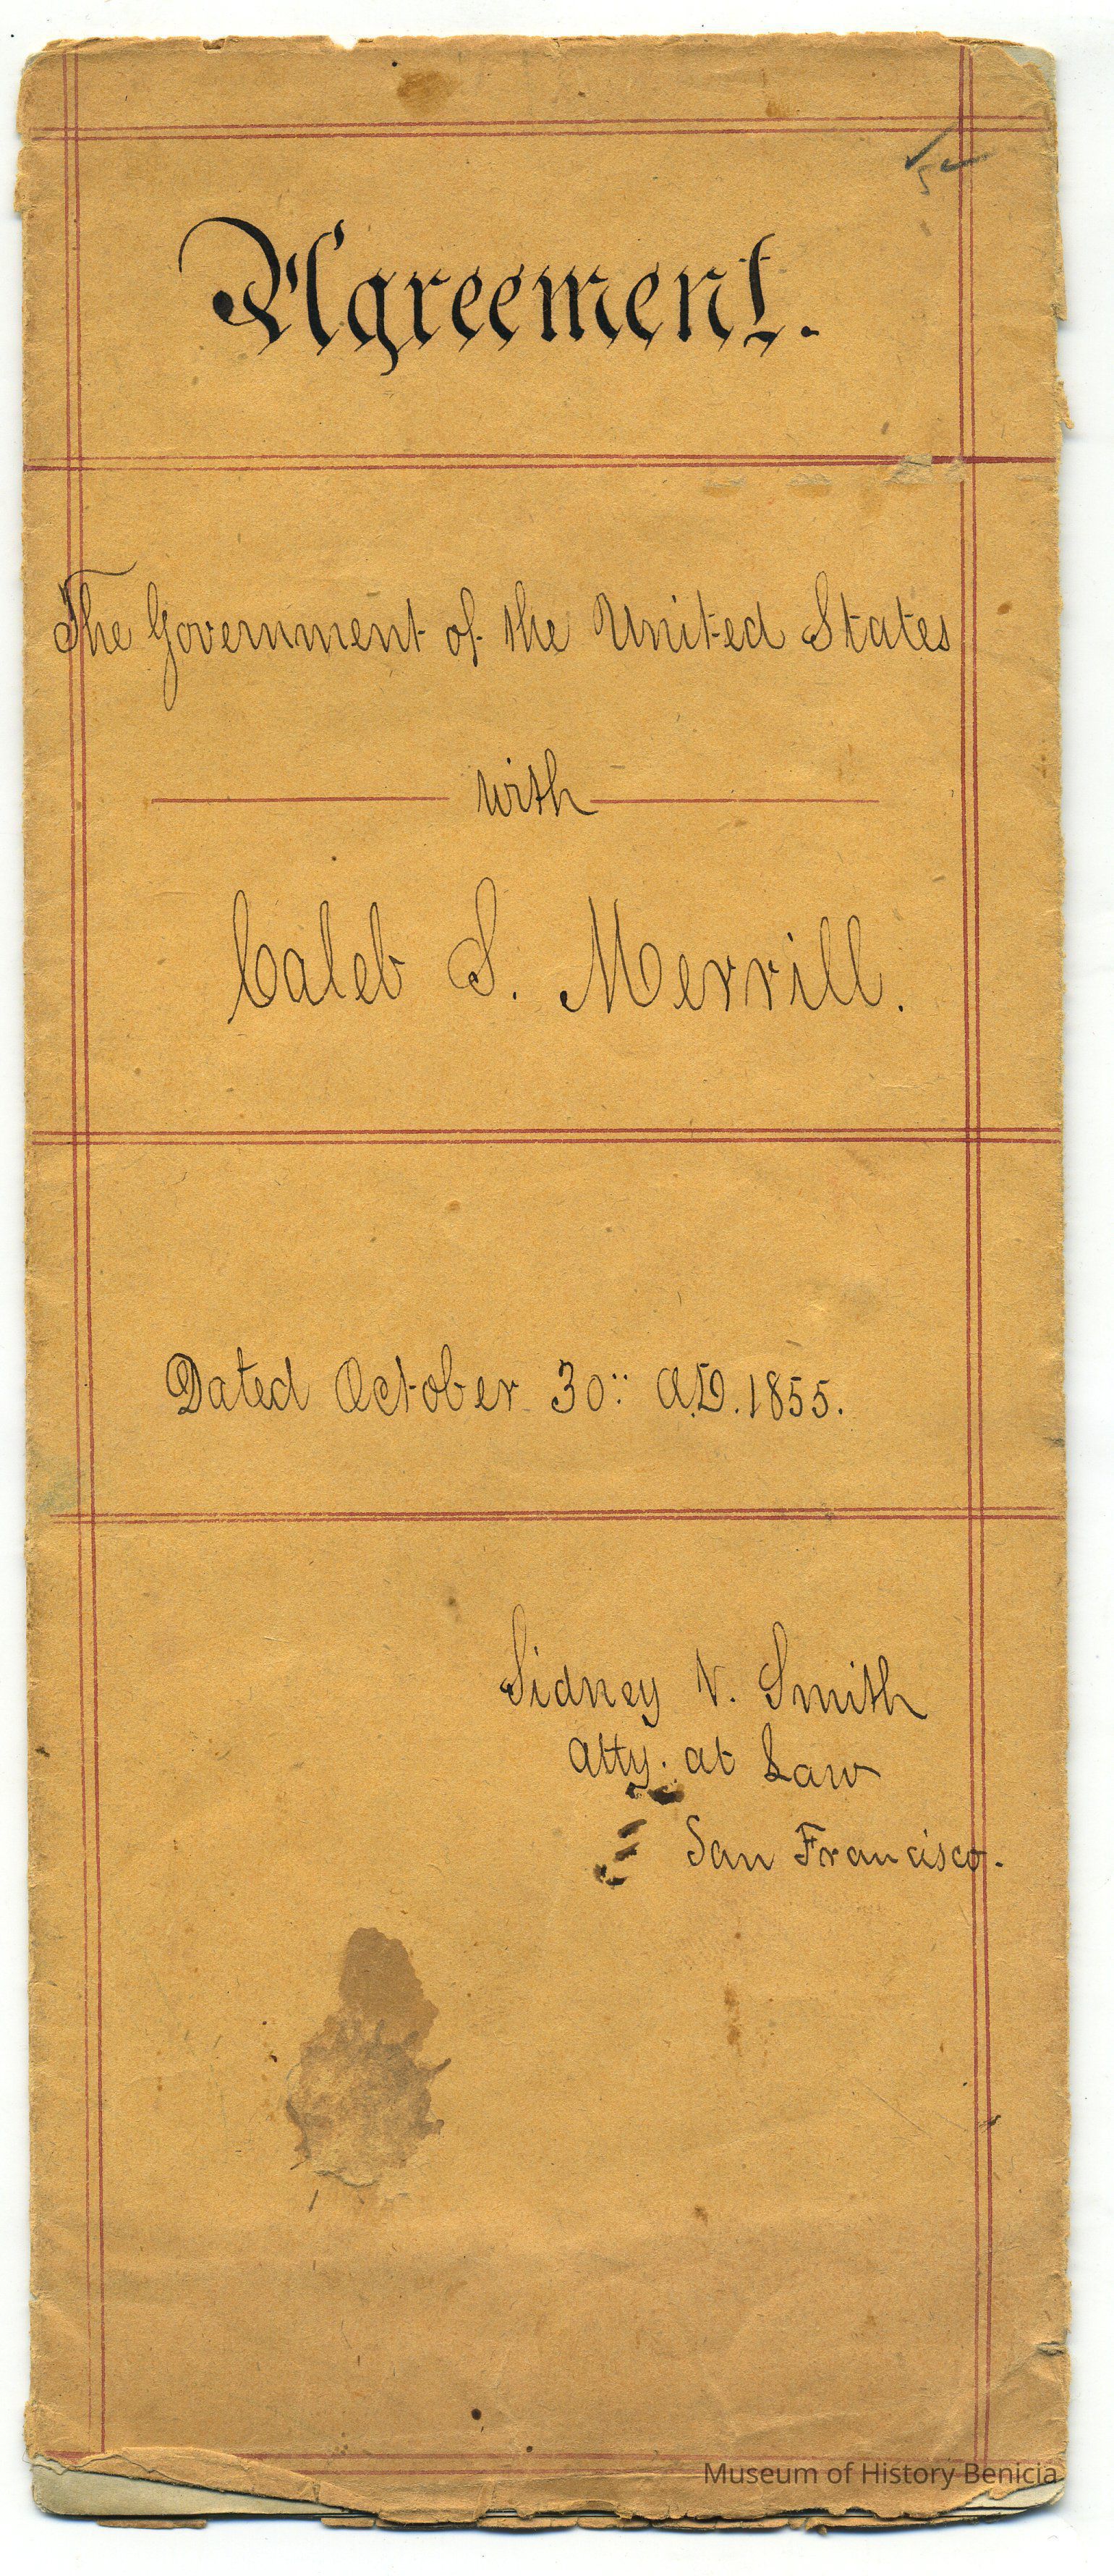 Agreement.
The Government of the United States
with
Caleb S. Merrill.
Dated October 30" A.D. 1855.
Sidney V. Smith
Atty. at Law
San Francisco.
Museum of History Benicia